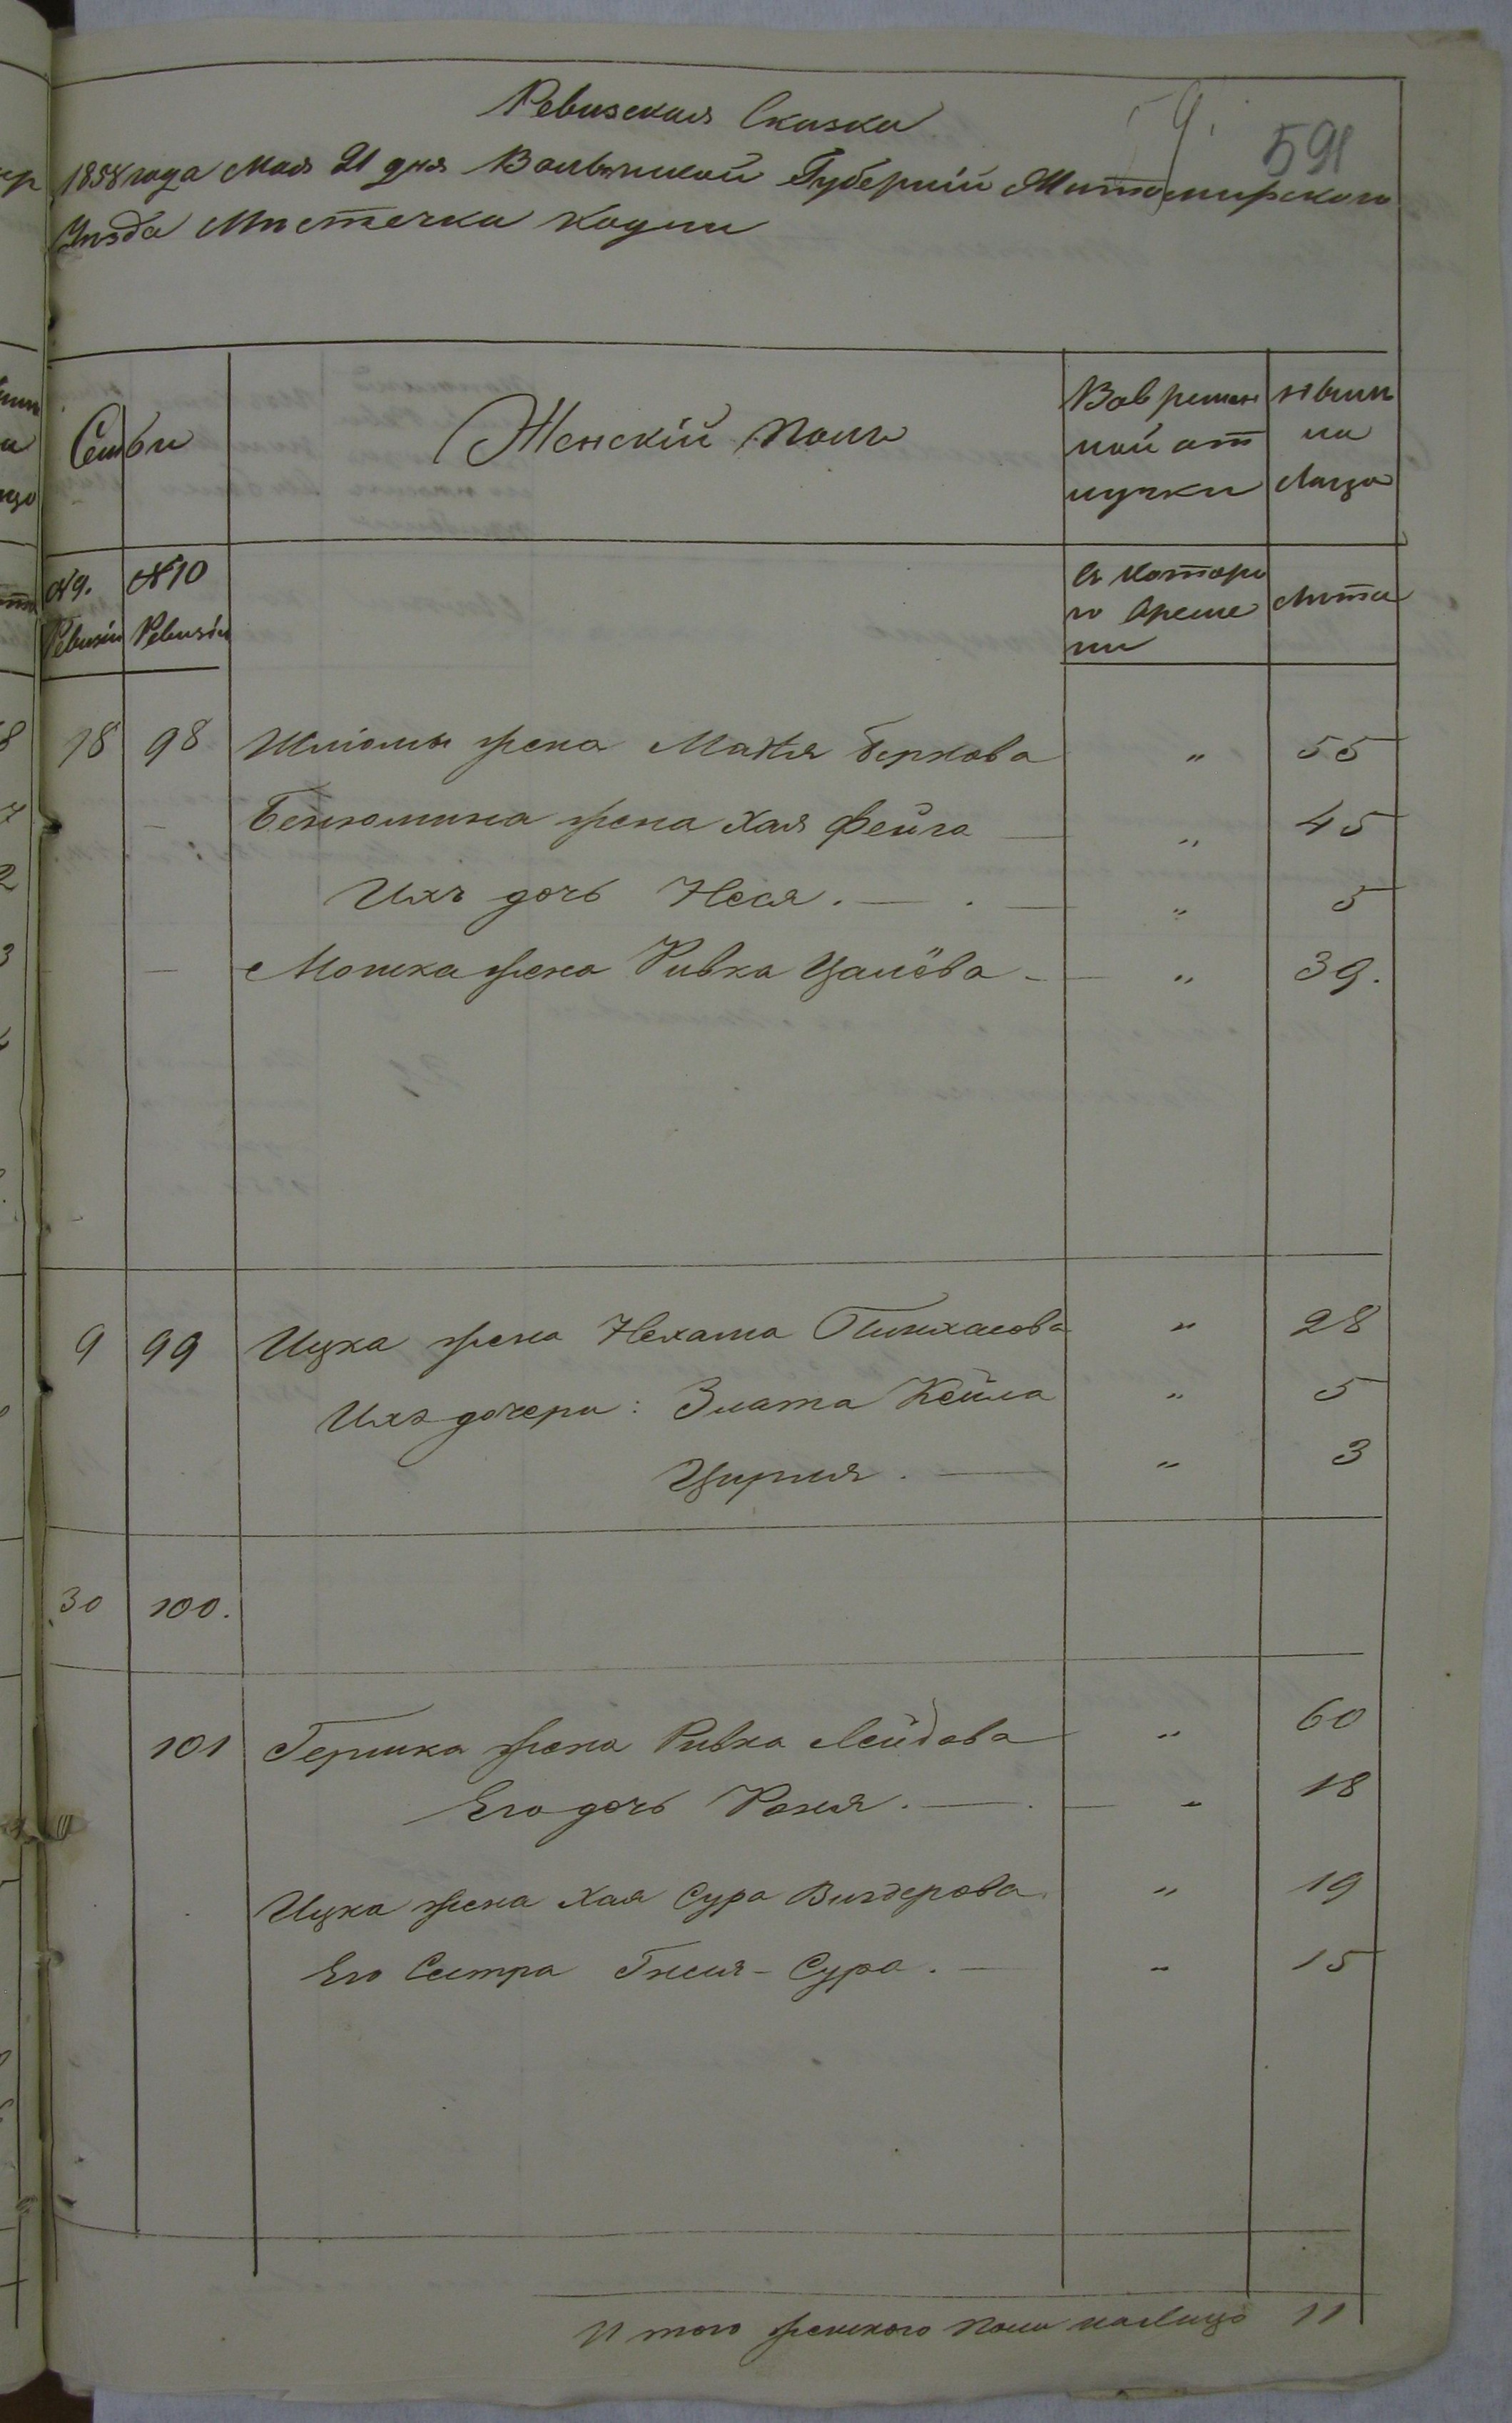 Ревизская Сказка
59.
591
1858 года Мая 21 дня Волынской Губерніи Житомирского
Уѣзда Мѣстечка Кодни
Семьи
Женскій полъ
Вовремен
ной от
лучки
нынѣ
на
Лицо
№ 9.
Ревизіи
№ 10
Ревизіи
Съ которо
го Време
ни
Лѣта
18 98 Шліомы жена Маня Беркова " 55
Бенюмина жена Хая Фейга — " 45
Ихъ дочь Неся. — . — " 5
— Мошка жена Ривка Цалёва — " 39.
9 99 Ицка жена Нехама Пинхасова " 28
Ихъ дочери: Злата Кейла " 5
Цирля. — " 3
30 100.
101 Гершка жена Ривка Лейбова " 60
Его дочь Рехля. — . — " 18
Ицка жена Хая Сура Вигдерова " 19
Его Сестра Гнеся - Сура. — " 15
Итого женского пола налицо 11